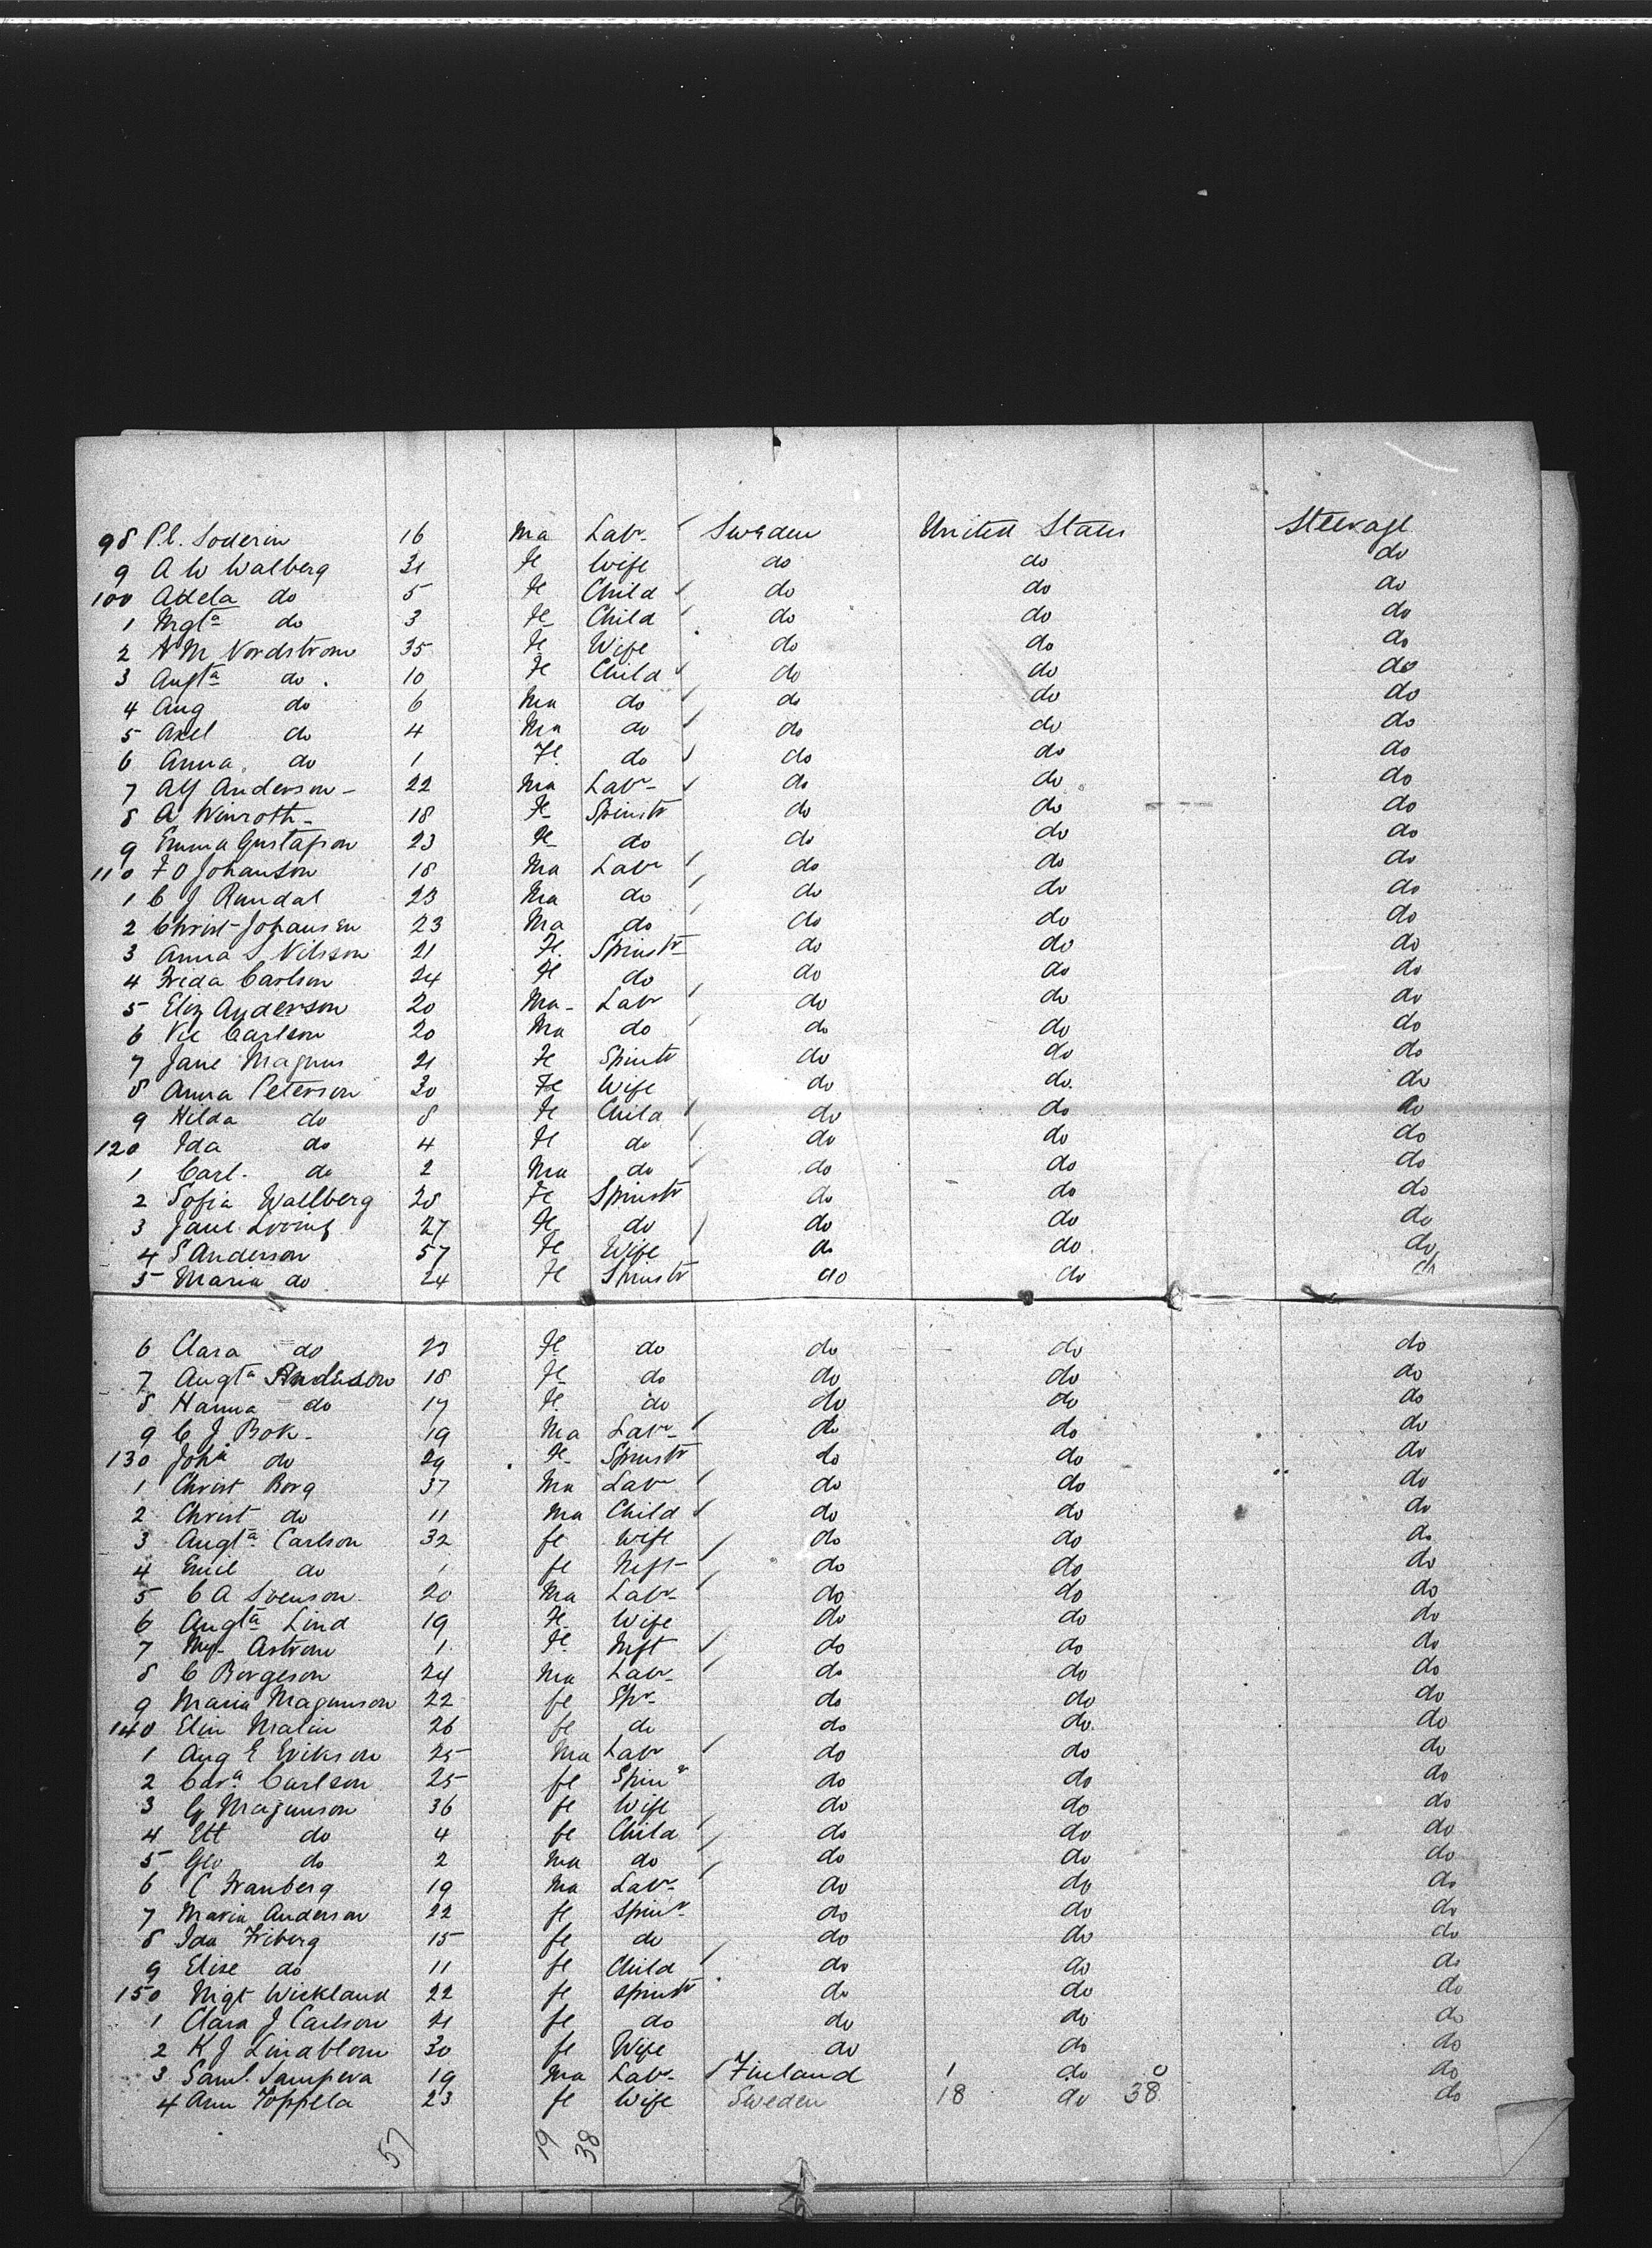 98 P.C. Soderin 16 Ma Labr Sweden United States Steerage
9 A W Walberg 31 Fe Wife do do do
100 Adela do 5 Fe Child do do do
1 Mgta do 3 Fe Child do do do
2 A M Nordstrom 35 Fe Wife do do do
3 Augta do 10 Fe Child do do do
4 Aug do 6 Ma do do do do
5 Axel do 4 Ma do do do do
6 Anna do 1 Fe do do do do
7 Anderson 22 Ma Labr do do do
8 A Winroth 18 Fe Spinstr do do do
9 Emma Gustafson 23 Fe do do do do
110 F O Johanson 18 Ma Labr do do do
1 C J Rundal 23 Ma do do do do
2 Christ Johansen 23 Ma do do do do
3 Anna S Nilsson 21 Fe Spinstr do do do
4 Frida Carlson 24 Fe do do do do
5 Eliz Anderson 20 Ma Labr do do do
6 Vic Carlson 20 Ma do do do do
7 Jane Magnus 21 Fe Spinstr do do do
8 Anna Peterson 30 Fe Wife do do do
9 Hilda do 8 Fe Child do do do
120 Ida do 4 Fe do do do do
1 Carl do 2 Ma do do do do
2 Sofia Wallberg 28 Fe Spinstr do do do
3 Jane 27 Fe do do do do
4 S Anderson 57 Fe Wife do do do
5 Maria do 24 Fe Spinstr do do do
6 Clara do 23 Fe do do do do
7 Augta Anderson 18 Fe do do do do
8 Hanna do 17 Fe do do do do
9 C J Bok 19 Ma Labr do do do
130 Joha do 29 Fe Spinstr do do do
1 Christ Borg 37 Ma Labr do do do
2 Christ do 11 Ma Child do do do
3 Augta Carlson 32 fe Wife do do do
4 Emil do 1 fe Inft do do do
5 C A Svenson 20 Ma Labr do do do
6 Augta Lind 19 Fe Wife do do do
7 My Astrom 1 Fe Inft do do do
8 C Borgeson 24 Ma Labr do do do
9 Maria Magnuson 22 fe Spr do do do
140 Elin Malin 26 fe do do do do
1 Aug E Erikson 25 Ma Labr do do do
2 Cara Carlson 25 fe Spinr do do do
3 G Magnuson 36 fe Wife do do do
4 Ett do 4 fe Child do do do
5 Geo do 2 Ma do do do do
6 C Franberg 19 Ma Labr do do do
7 Maria Anderson 22 fe Spinr do do do
8 Ida Friberg 15 fe do do do do
9 Elise do 11 fe Child do do do
150 Mgt Wickland 22 fe Spinstr do do do
1 Clara J Carlson 21 fe do do do do
2 K J Lindblom 30 fe Wife do do do
3 Saml. Sampeva 19 Ma Labr Finland 1 do 0 do
4 Ann Toppela 23 fe Wife Sweden 18 do 38 do
57 19 38